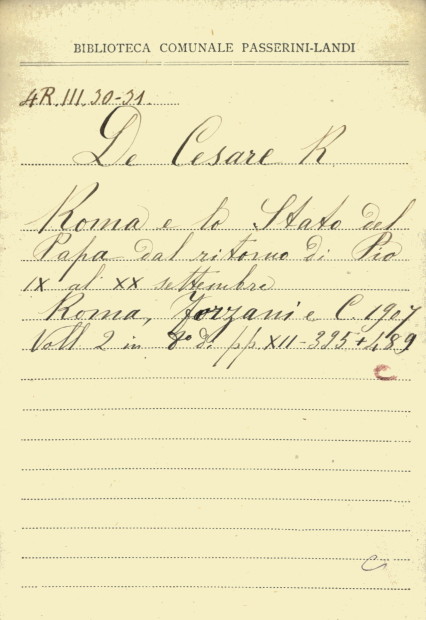 BIBLIOTECA COMUNALE PASSERINI-LANDI
4R.III.30-31.
De Cesare R.
Roma e lo Stato del
Papa dal ritorno di Pio
IX al XX settembre
Roma, Forzani e C. 1907
Voll 2 in 8º di pp XII-395+489
C
C